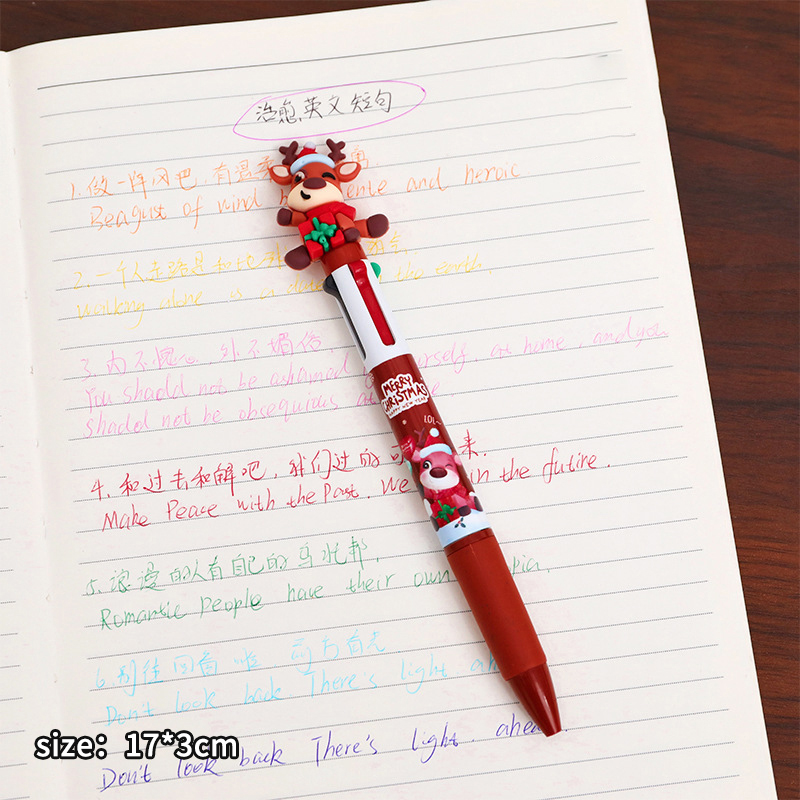 治愈英文短句
1. 做一阵风吧,有温柔
Be a gust of wind gente and heroic
2. 一个人走路是和
Walking alone is a the earth.
3. 内不愧心,外不媚俗,
You shoold not be ashamed yourself, at home, and you
shoold not be obsequious at
4. 和过去和解吧,我们过的 来.
Make Peace with the Past. We in the future.
5. 浪漫的人有自己的乌托邦,
Romantic people have their own pia.
6. 别往回看 前方有光
Don't look back There's light
Don't look back There's light. ahead.
MERRY
CHRISTMAS
HAPPY NEW YEAR
size: 17*3cm